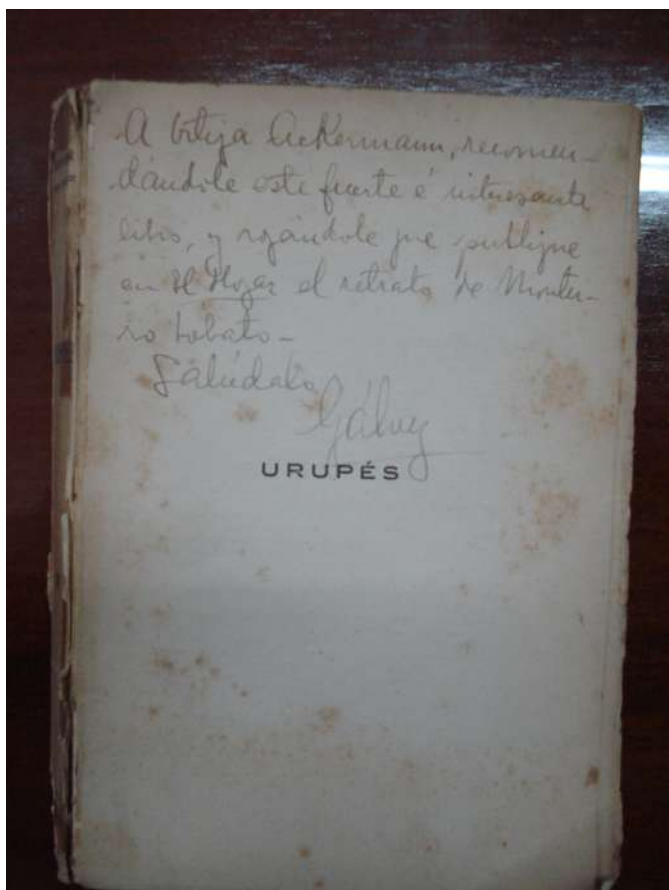 A Ortiga Ackermann, recomen-
dándole este fuerte é interesante
libro, y rogándole que publique
en El Hogar el retrato de Montei-
ro Lobato-
Salúdalo
Gálvez
URUPÉS